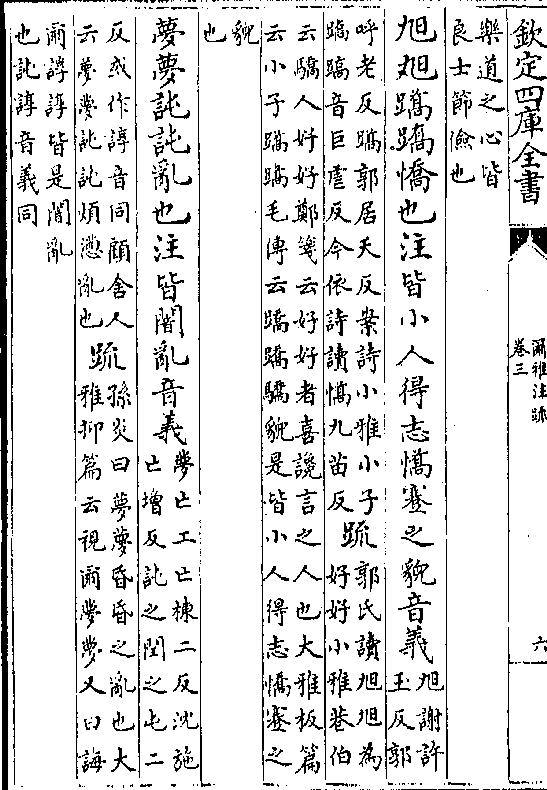 欽定四庫全書
爾雅注疏
卷三
六
樂道之心皆
良士節儉也
旭旭蹻蹻憍也注皆小人得志憍蹇之貌音義
旭謝許
玉反郭
呼老反蹻郭居夭反案詩小雅小子
蹻蹻音巨虐反今依詩讀憍九苗反
疏
郭氏讀旭旭為
好好小雅巷伯
云驕人好好鄭箋云好好者喜讒言之人也大雅板篇
云小子蹻蹻毛傳云蹻蹻驕貌是皆小人得志憍蹇之
貌
也
夢夢訰訰亂也注皆闇亂音義
夢亡工亡棟二反沈施
亡增反訰之閏之屯二
反或作諄音同顧舍人
云夢夢訰訰煩懣亂也
疏
孫炎曰夢夢昏昏之亂也大
雅抑篇云視爾夢夢又曰誨
爾諄諄皆是闇亂
也訰諄音義同